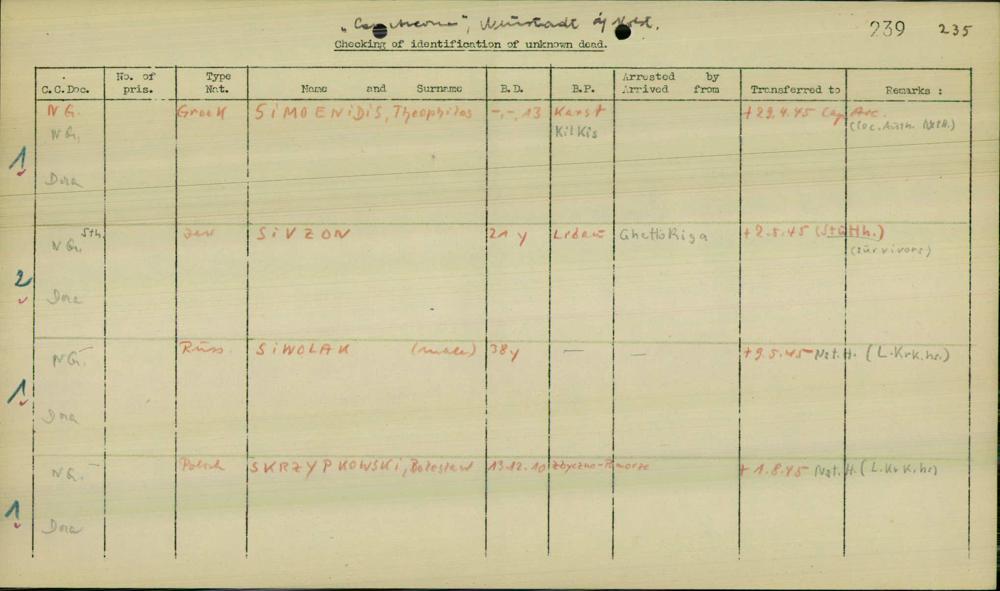 "Cap Arcona", Neustadt i/ Holst.
239 235
Checking of identification of unknown dead.
C.C.Doc. No. of pris. Type Nat. Name and Surname B.D. B.P. Arrested by Arrived from Transferred to Remarks :
NG. Greek SiMOENiDiS, Theophilos -.-.13 Karst +29.4.45 Cap Arc.
NG. KilKis
1
Dora
NG. Sth. Jew SiVZON 21 y Libau Ghetto Riga +2.5.45 (StGHh.)
(survivors)
2
Dora
NG. Russ. SiWOLAK (male) 38y — — +9.5.45 Nst.H. (L.Krk.hs.)
1
Dora
NG. Polish SKRZYPKOWSKi, Bolesław 13.12.10 + 1.8.45 Nst.H. (L.KrK.hs)
1
Dora